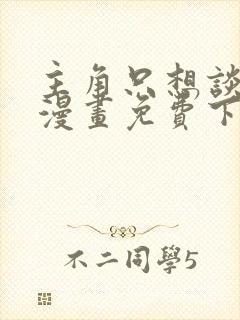 主角只想談
漫畫免費下
不二同學5